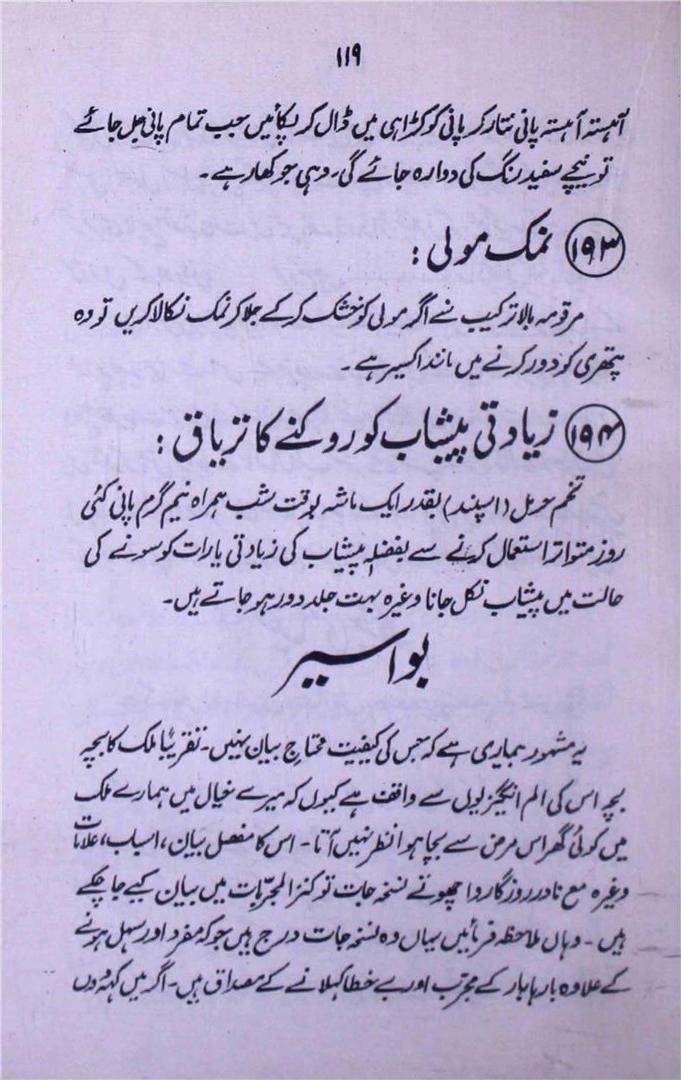 ۱۱۹
آہستہ آہستہ پانی نتار کر پانی کو کڑاہی میں ڈال کر پکائیں جب تمام پانی جل جائے
تو نیچے سفید رنگ کی دوا رہ جائے گی۔ وہی جو کھار ہے۔
۱۹۳ نمک مولی :
مرقومہ بالا ترکیب سے اگر مولی کو خشک کر کے جلا کر نمک نکالا کریں تو وہ
پتھری کو دور کرنے میں مانند اکسیر ہے۔
۱۹۴ زیادتی پیشاب کو روکنے کا تریاق :
تخم حرمل (اسپند) بقدر ایک ماشہ بوقت شب ہمراہ نیم گرم پانی کئی
روز متواتر استعمال کرنے سے بفضلہٖ پیشاب کی زیادتی یا رات کو سونے کی
حالت میں پیشاب نکل جانا وغیرہ بہت جلد دور ہو جاتے ہیں۔
بواسیر
یہ مشہور بیماری ہے کہ جس کی کیفیت محتاج بیان نہیں۔ تقریباً ملک کا بچہ
بچہ اس کی الم انگیزیوں سے واقف ہے کیوں کہ میرے خیال میں ہمارے ملک
میں کوئی گھر اس مرض سے بچا ہوا نظر نہیں آتا۔ اس کا مفصل بیان، اسباب، علامات
وغیرہ مع نادر روزگار و اچھوتے نسخہ جات تو کنز المجربات میں بیان کیے جا چکے
ہیں۔ وہاں ملاحظہ فرمائیں یہاں وہ نسخہ جات درج ہیں جو کہ مفرد اور سہل ہونے
کے علاوہ بارہا بار کے مجرب اور بے خطا کہلانے کے مصداق ہیں۔ اگر میں کہہ دوں